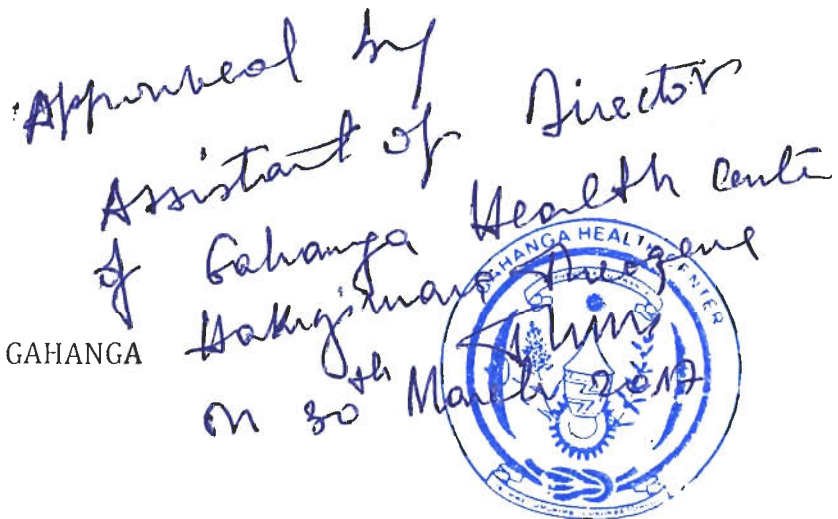 Approuveal by
Assistant of Director
of Gahanga Health Cente
Hakizimana Diogene
GAHANGA
on 30th March 2017
GAHANGA HEALTH CENTER